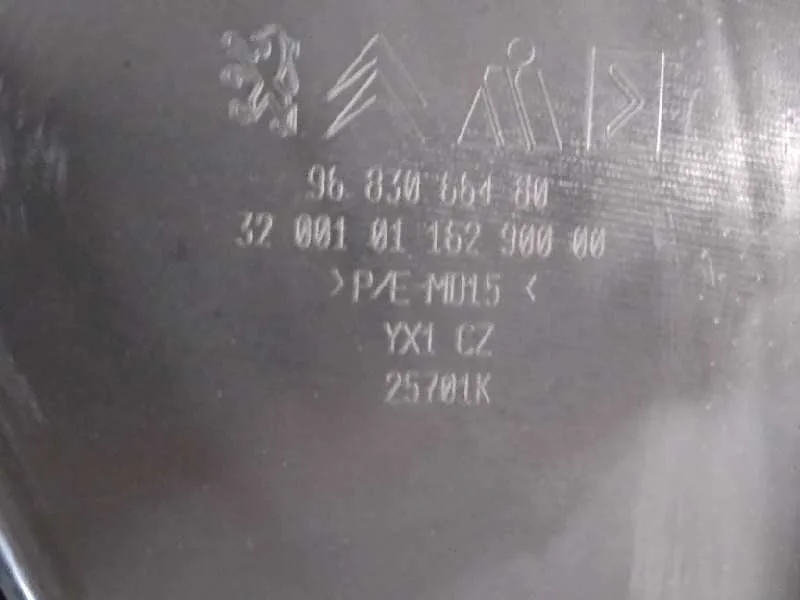 96 830 664 80
32 001 01 162 900 00
>P/E-MD15<
YX1 CZ
25701K